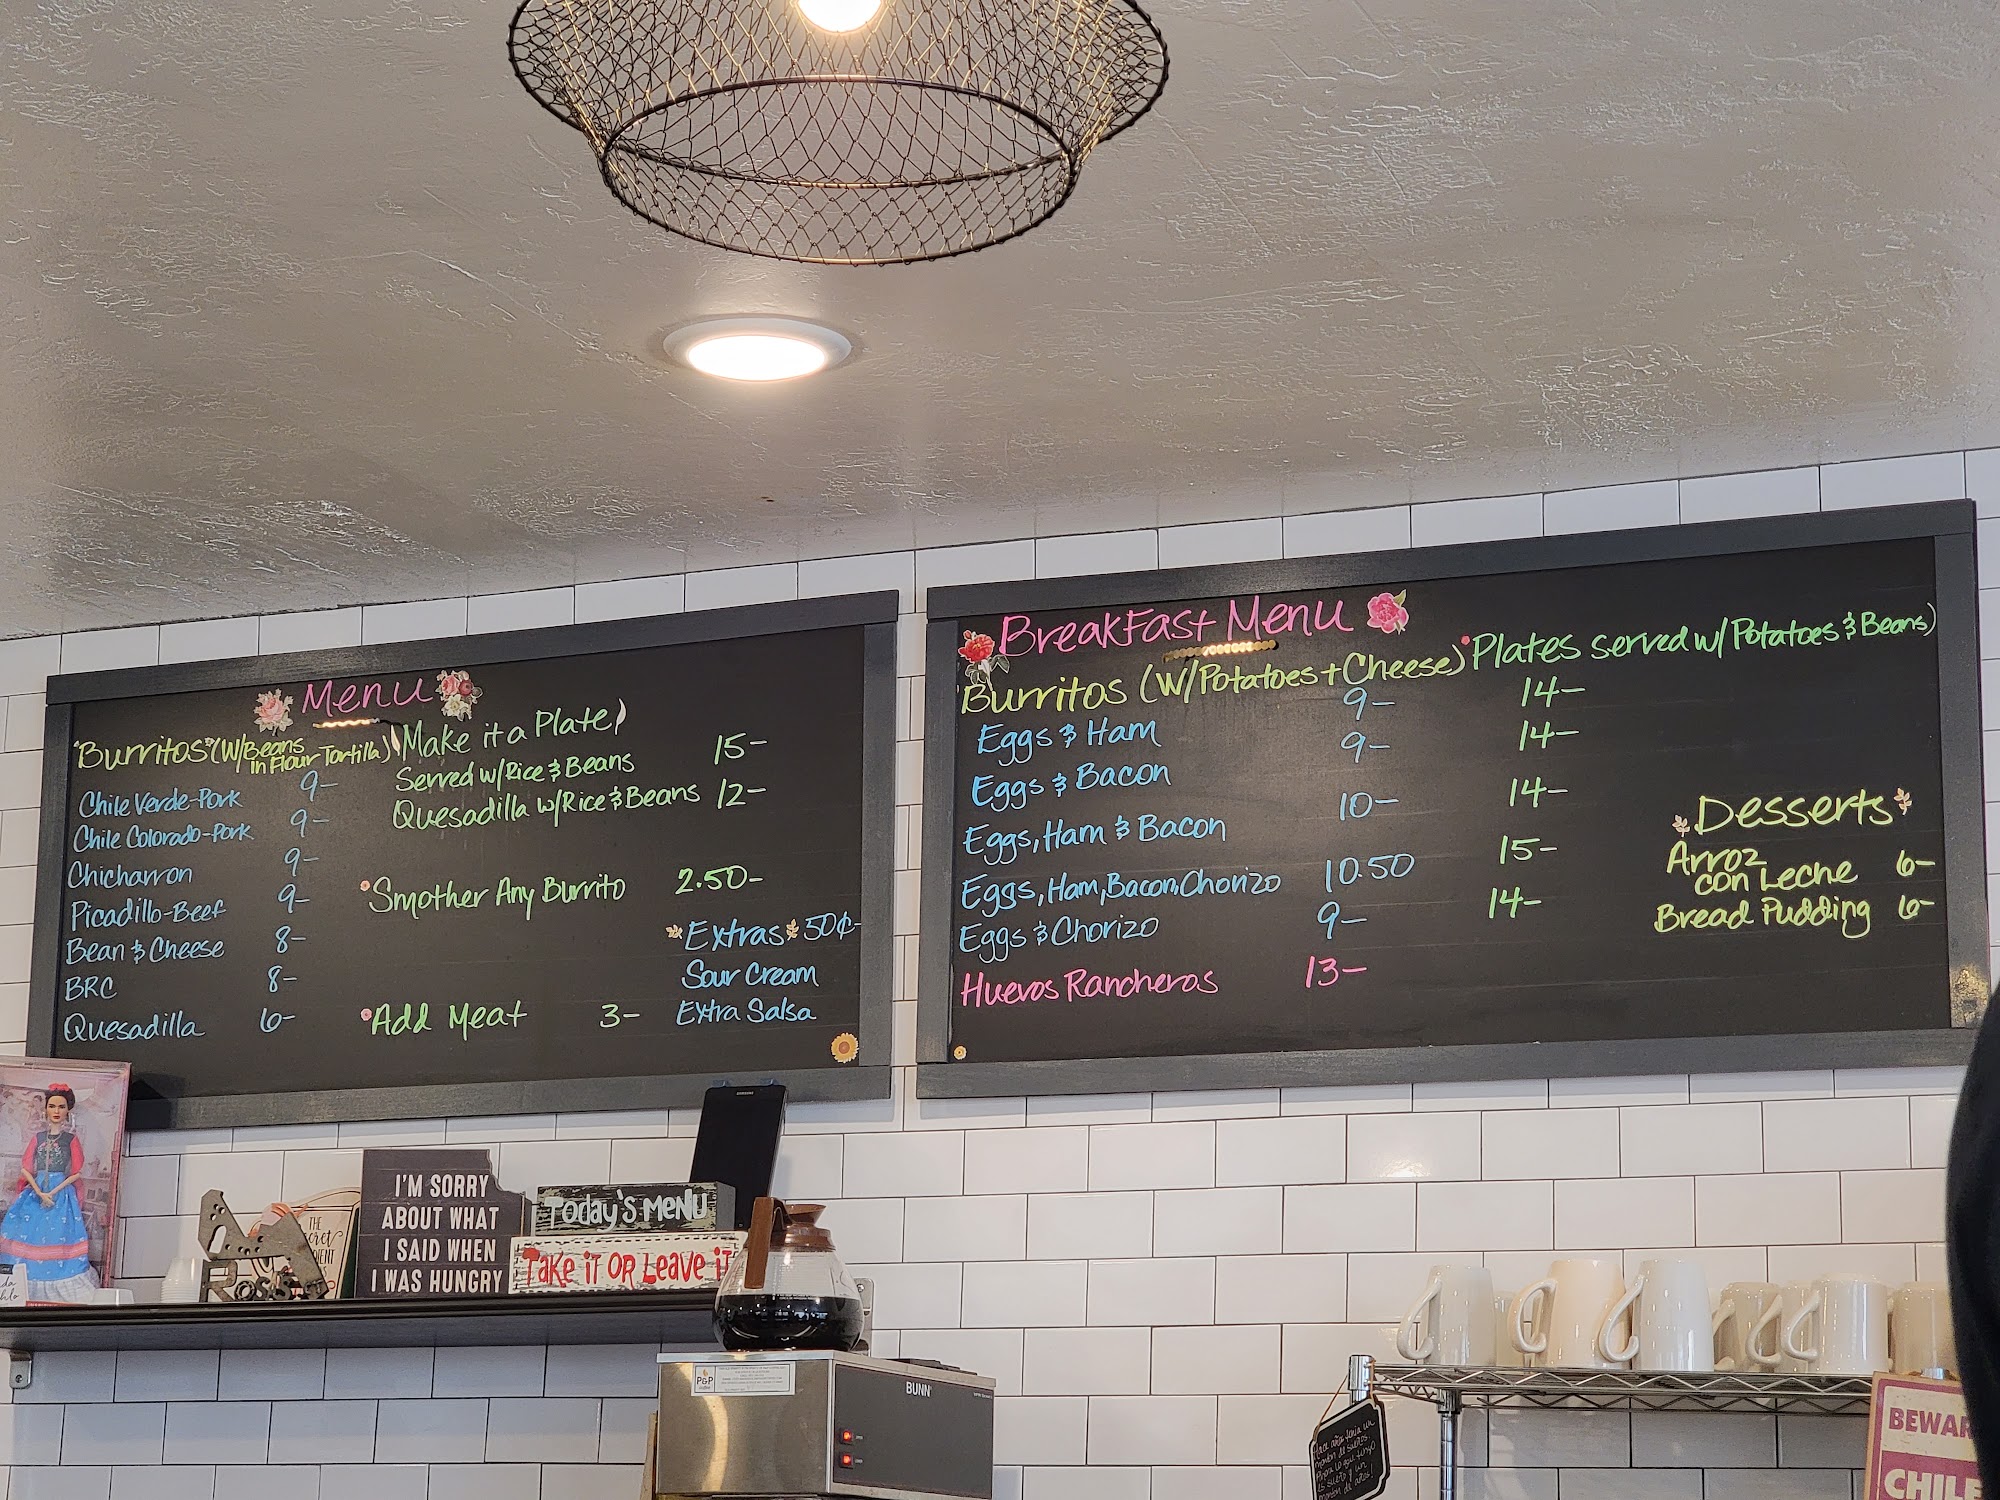 Menu
"Burritos" (w/Beans
in Flour Tortilla)
Chile Verde-Pork 9-
Chile Colorado-Pork 9-
Chicharron 9-
Picadillo-Beef 9-
Bean & Cheese 8-
BRC 8-
Quesadilla 6-
Make it a Plate
Served w/Rice & Beans 15-
Quesadilla w/Rice & Beans 12-
Smother Any Burrito 2.50-
Add Meat 3-
Extras 50¢-
Sour Cream
Extra Salsa
Breakfast Menu
Burritos (w/Potatoes + Cheese)
Plates served w/Potatoes & Beans)
Eggs & Ham 9- 14-
Eggs & Bacon 9- 14-
Eggs, Ham & Bacon 10- 14-
Eggs, Ham, Bacon, Chorizo 10.50 15-
Eggs & Chorizo 9- 14-
Huevos Rancheros 13-
Desserts
Arroz
con Leche 6-
Bread Pudding 6-
SAMSUNG
THE
I'M SORRY
ABOUT WHAT
I SAID WHEN
I WAS HUNGRY
Today's Menu
Take it or Leave it
P&P
BUNN
BEWAR
CHILE